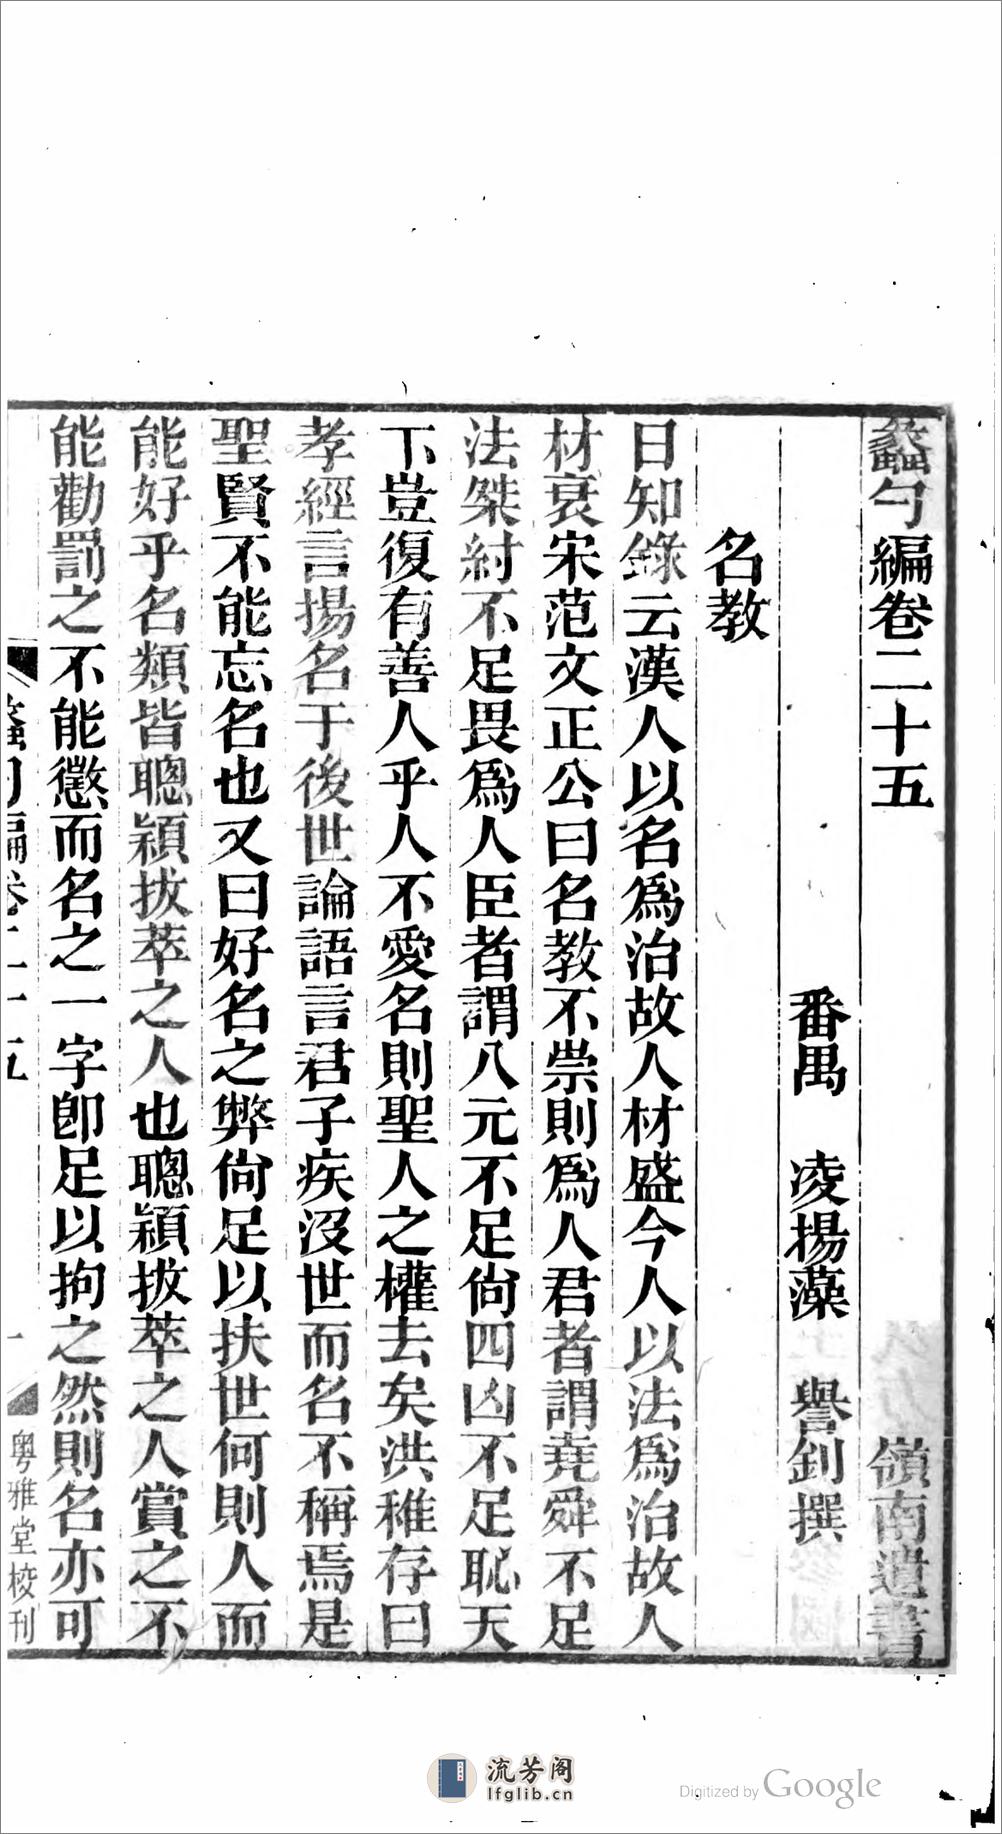 蠡勺編卷二十五 嶺南遺書
番禺 凌揚藻 譽釗撰
名教
日知錄云漢人以名爲治故人材盛今人以法爲治故人
材衰宋范文正公曰名教不崇則爲人君者謂堯舜不足
法桀紂不足畏爲人臣者謂八元不足尙四凶不足恥天
下豈復有善人乎人不愛名則聖人之權去矣洪稚存曰
孝經言揚名于後世論語言君子疾沒世而名不稱焉是
聖賢不能忘名也又曰好名之弊尙足以扶世何則人而
能好乎名類皆聰穎拔萃之人也聰穎拔萃之人賞之不
能勸罰之不能懲而名之一字卽足以拘之然則名亦可
蠡勺編卷二十五 一 粵雅堂校刊
流芳阁
lfglib.cn
Digitized by Google